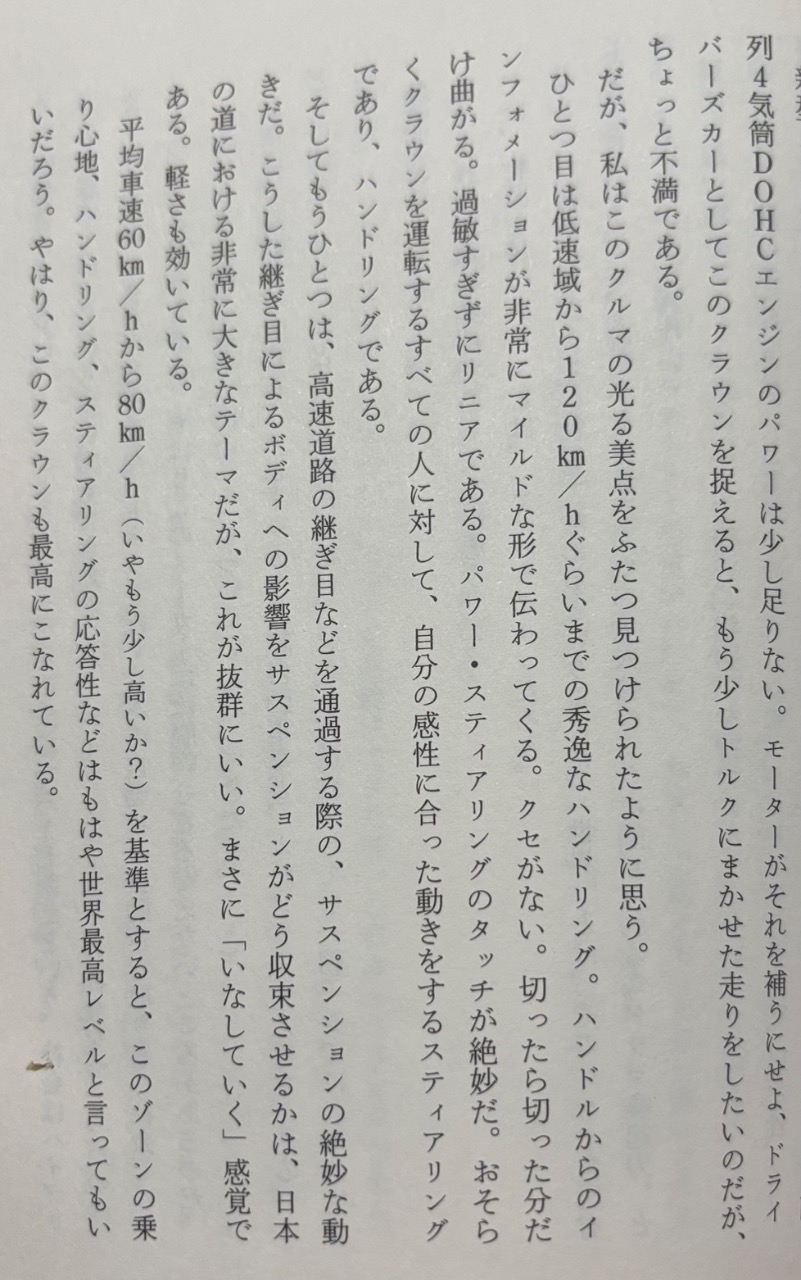 列4気筒DOHCエンジンのパワーは少し足りない。モーターがそれを補うにせよ、ドライ
バーズカーとしてこのクラウンを捉えると、もう少しトルクにまかせた走りをしたいのだが、
ちょっと不満である。
だが、私はこのクルマの光る美点をふたつ見つけられたように思う。
ひとつ目は低速域から120㎞/hぐらいまでの秀逸なハンドリング。ハンドルからのイ
ンフォメーションが非常にマイルドな形で伝わってくる。クセがない。切ったら切った分だ
け曲がる。過敏すぎずにリニアである。パワー・スティアリングのタッチが絶妙だ。おそら
くクラウンを運転するすべての人に対して、自分の感性に合った動きをするスティアリング
であり、ハンドリングである。
そしてもうひとつは、高速道路の継ぎ目などを通過する際の、サスペンションの絶妙な動
きだ。こうした継ぎ目によるボディへの影響をサスペンションがどう収束させるかは、日本
の道における非常に大きなテーマだが、これが抜群にいい。まさに「いなしていく」感覚で
ある。軽さも効いている。
平均車速60㎞/hから80㎞/h(いやもう少し高いか?)を基準とすると、このゾーンの乗
り心地、ハンドリング、スティアリングの応答性などはもはや世界最高レベルと言ってもい
いだろう。やはり、このクラウンも最高にこなれている。